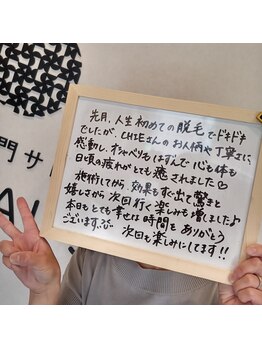 門サ
先月、人生初めての脱毛でドキドキ
でしたが、CHIEさんのお人柄や丁寧さに
感動し、オシャベリもはずんで心も体も
日頃の疲れがとても癒されました♡
施術してから、効果もすぐ出て驚きと
嬉しさから次回行く楽しみも増しました♪
本日もとても幸せな時間をありがとう
ございます。
次回も楽しみにしてます!!